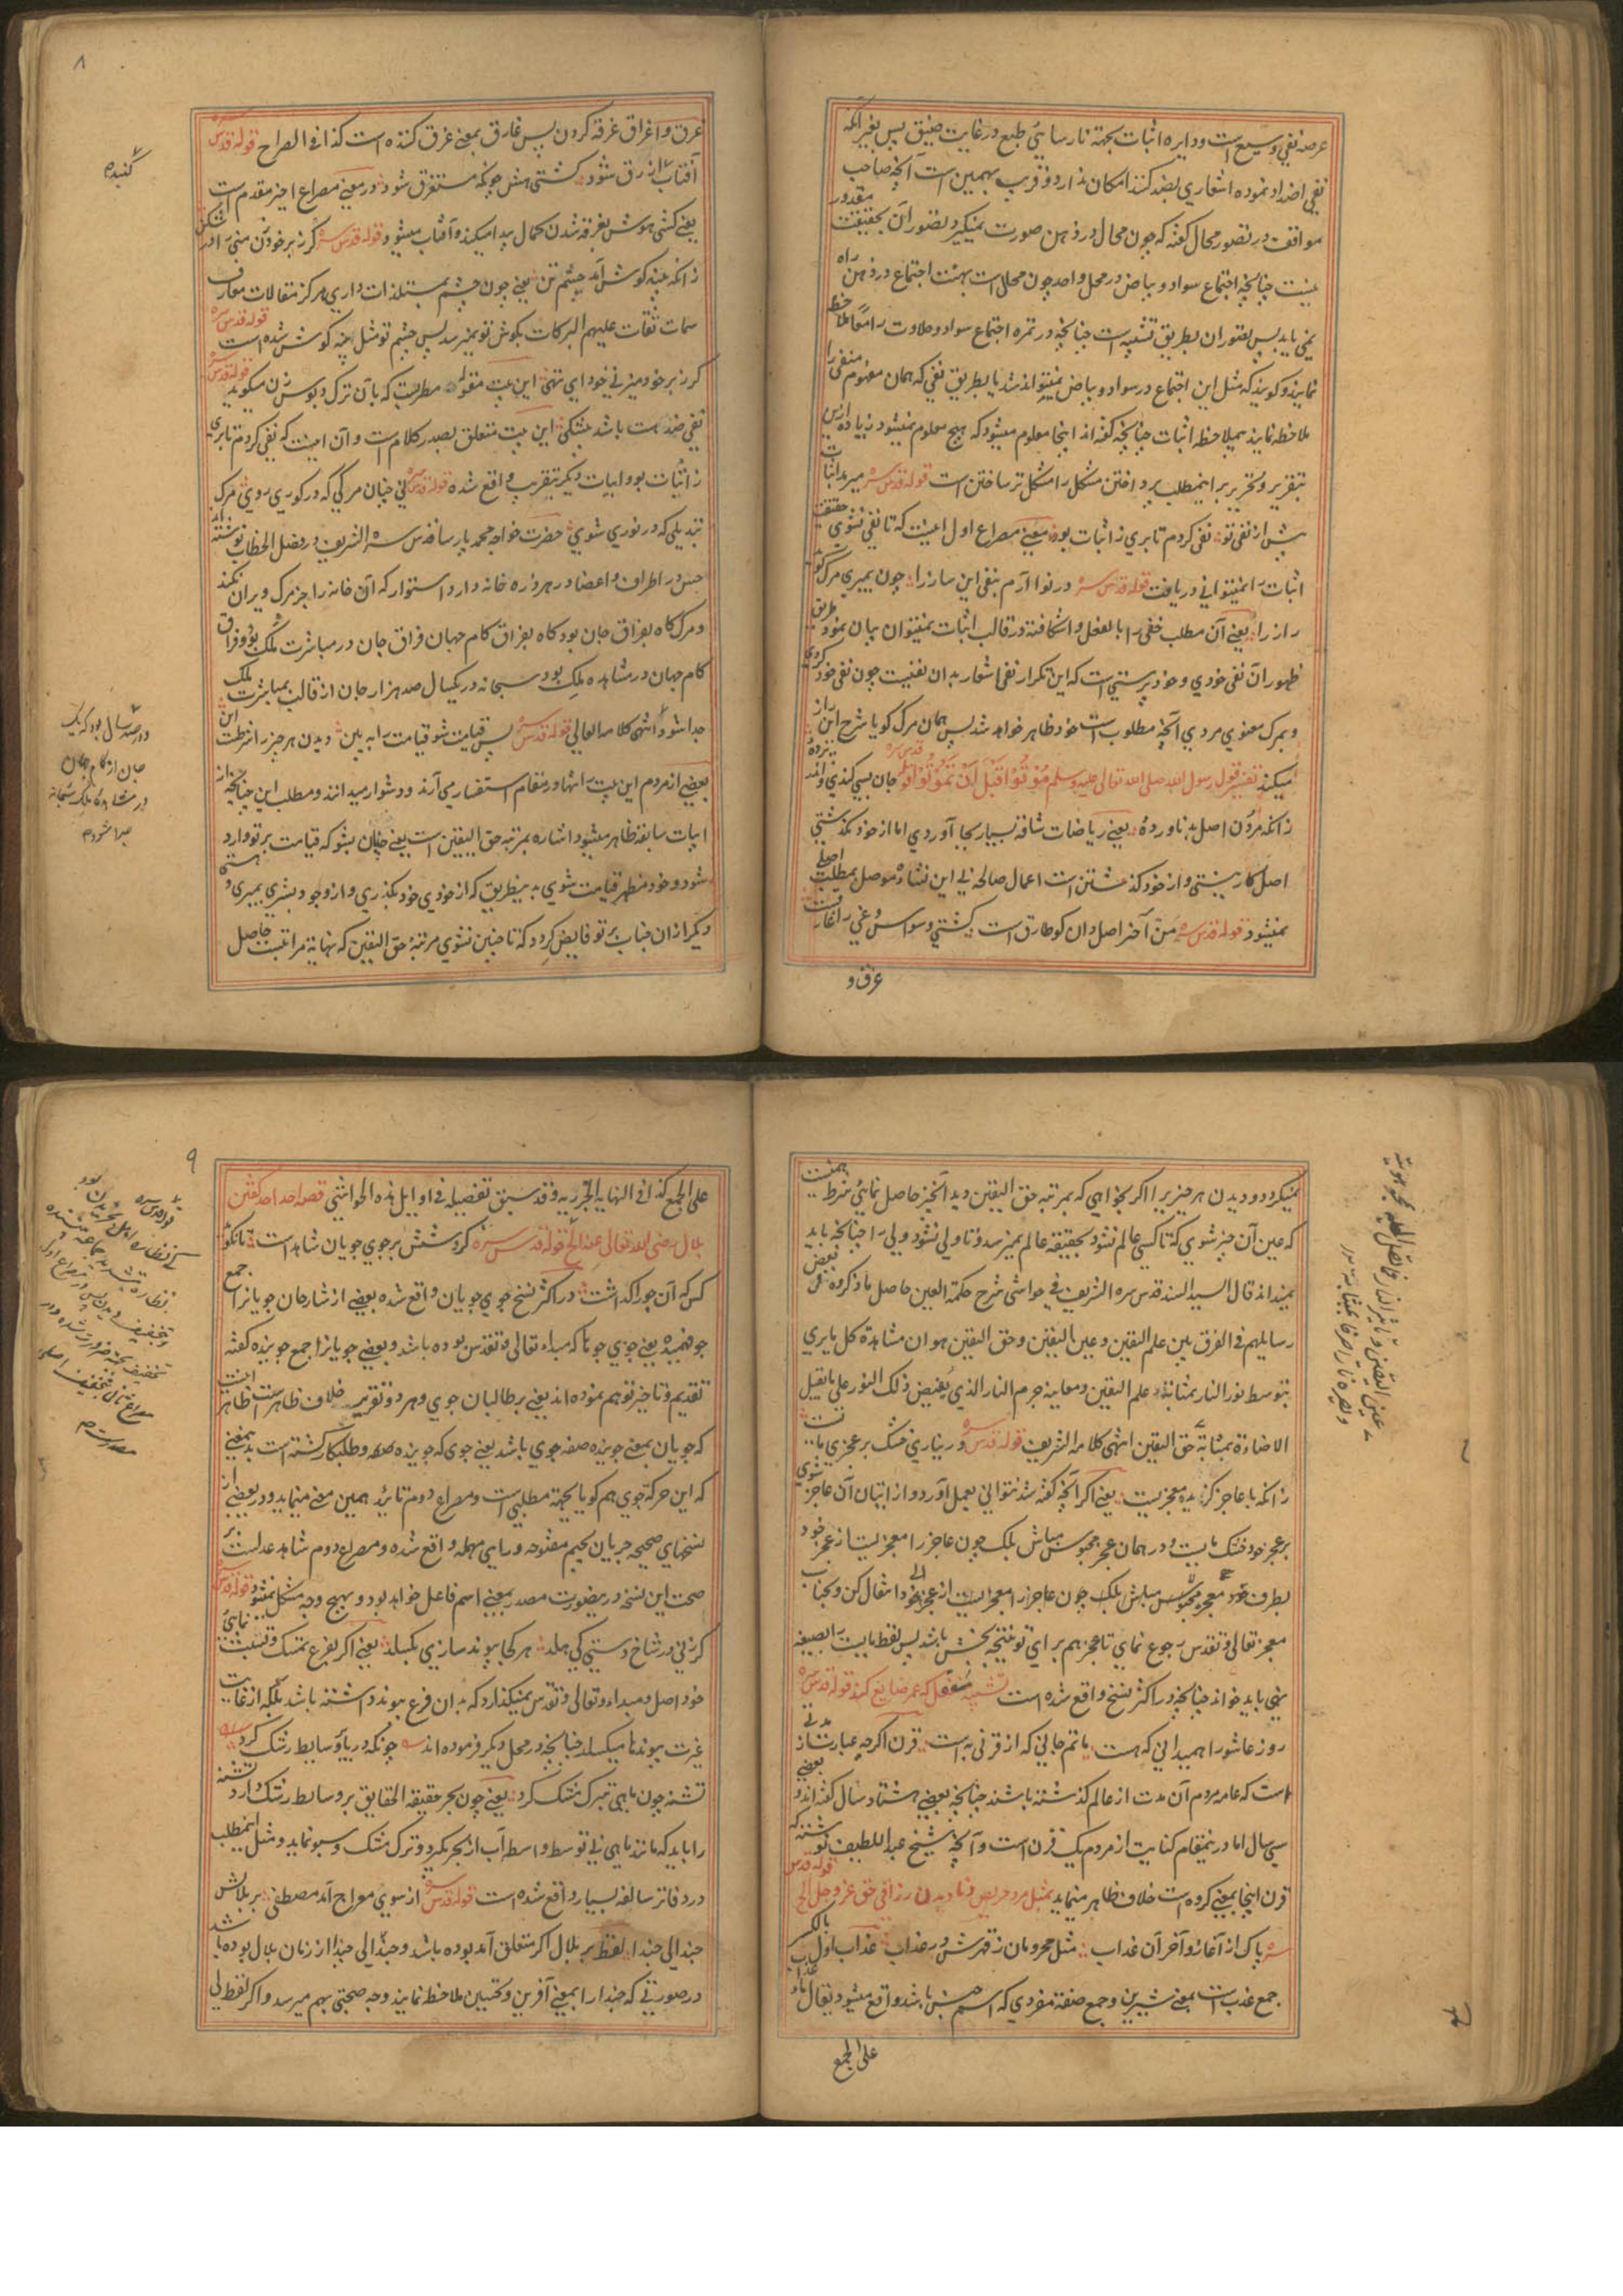 عرصه نفی وسیع است ودایره اثبات بجهة نارسایئ طبع در غایت ضیق پس بغیر آنکه
نفی اضداد نموده اشعاری بضد کنند امکان ندارد و قریب بهمین است آنچه صاحب
مواقف در تصور محال گفته که چون محال در ذهن صورت نمیگیرد تصور آن بحقیقت مقدور
نیست چنانچه اجتماع سواد و بیاض در محل واحد چون محال است بهیئت اجتماع در ذهن راه
نمی یابد پس تصور ان بطریق تشبیه است چنانچه در تمره اجتماع سواد و حلاوت را معا ملاحظه
نمایند و کویند که مثل این اجتماع در سواد و بیاض نمیتواند شد یا بطریق نفی که همان مفهوم منفی را
ملاحظه نمایند بملاحظه اثبات چنانچه گفته اند اینجا معلوم میشود که هیچ معلوم نمیشود زیاده ازین
بتقریر و تحریر بر اینمطلب پرداختن مشکل را مشکل تر ساختن است قوله قدس سره میرمد اثبات
پیش از نفی تو نفی کردم تا بری ز اثبات بو معنی مصراع اول اینست که تا نفی نشوی حقیقت
اثبات را نمیتوانی دریافت قوله قدس سره در نوا آرم بنفی این ساز را چون بمیری مرگ گوید
راز را یعنی آن مطلب خفی را بالفعل واشکافته در قالب اثبات نمیتوان بیان نمود طریق
ظهور آن نفی خودی و خود پرستی است که این تکرار نفی اشعار بدان نفیست چون نفی خود کردی
و بمرک معنوی مردی آنچه مطلوب است خود ظاهر خواهد شد پس همان مرک کویا شرح این راز
میکند تفسیر قول رسول الله صلی الله تعالی علیه وسلم مُوتُوا قَبْلَ اَنْ تَمُوتُوا قوله قدس سره جان بسی کندی واندر پرده
زانکه مردن اصل بد ناورده یعنی ریاضات شاقه بسیار بجا آوردی اما از خود نگذشتی
اصل کار نیستی و از خود گذشتن است اعمال صالحه بی این نشاه موصل بمطلب اصلی
نمیشود قوله قدس سره من آخر اصل دان کو طارق است کشتی وسواس و غی را غارقست
غرق و
۸
غرق و اغراق غرقه کردن پس غارق بمعنی غرق کننده است کذا فی الصراح قوله قدس سره
آفتاب ازرق شود کشتی هش چونکه مستغرق شود در معنی مصراع اخیر مقدم است
یعنی کشتی هوش بغرقه شدن کمال پیدا میکند و آفتاب میشود قوله قدس سره گرز بر خود زن منی را در شکن
زانکه پنبه کوش آمد چشم تن یعنی چون چشم بمستلذات داری هرکز مقالات معارف
سمات ثقات علیهم البرکات بکوش تو نمیرسد پس چشم تو مثل پنبه کوش شده است قوله قدس سره
کرز بر خود میزنی خود ای تهی این بیت مقوله مطربست که با آن ترک دبوس زن میکوید قوله قدس سره
نفی ضد هست باشد بیشکی این بیت متعلق بصدر کلام است و آن اینست که نفی کردم تا بری
ز اثبات بو و ابیات دیکر بتقریب واقع شده قوله قدس سره نی چنان مرگی که در کوری روی مرک
تبدیلی که در نوری شوی حضرت خواجه محمد پارسا قدس سره الشریف در فصل الخطاب نوشته اند
حبس در اطراف و اعضا در هر ذره خانه دارد استوار که آن خانه را جز مرک ویران نکند
و مرک کاه بفراق جان بود کاه بفراق کام جهان فراق جان در مباشرت ملک بود و فراق
کام جهان در مشاهده ملک بود سبحانه در یکسال صد هزار جان از قالب بمباشرت ملک
جدا شود انتهی کلامه العالی قوله قدس سره پس قیامت شو قیامت را به بین دیدن هر چیز را شرطست این
بعضی از مردم این بیت را تنها در مقام استفسار می آرند و دشوار میدانند و مطلب این چنانچه از
ابیات سابقه ظاهر میشود اشاره بمرتبه حق الیقین است یعنی چنان بشو که قیامت بر تو وارد
شود و خود مظهر قیامت شوی بدینطریق که از خودی خود بگذری و از وجود بشری بمیری و هستی
دیکر از ان جناب بر تو فایض کردد که تا چنین نشوی مرتبه حق الیقین که نهایة مراتبست حاصل
کنیده
در صد سال بود که یک
جان از کام جهان
در مشاهده ملک سبحانه
جدا شود م
نمیکردد و دیدن هر چیز را اکر بخواهی که بمرتبه حق الیقین دید آنچیز حاصل نمایئ شرط همینست
که عین آن چیز شوی که تا کسی عالم نشود بحقیقة عالم نمیرسد و تا ولی نشود ولی را چنانچه باید
نمیداند قال السید السند قدس سره الشریف فی حواشی شرح حکمة العین حاصل ما ذکروه فی بعض
رسایلهم فی الفرق بین علم الیقین و عین الیقین وحق الیقین هو ان مشاهدة کل ما یری
بتوسط نور النار بمثابة علم الیقین ومعاینة جرم النار الذی یفیض ذلک النور علی ما یقبل
الاضاءة بمثابة حق الیقین انتهی کلامه الشریف قوله قدس سره ور نیاری خشک بر عجزی مایست
زانکه با عاجز گزیده معجزیست یعنی اکر آنچه گفته شد نتوانی بعمل آورد و از اتیان آن عاجز شوی
بر عجز خود خشک مایست و در همان عجز محبوس مباش بلکه چون عاجز را معجزیست از عجز خود
بطرف معجز محبوس مباش بلکه چون عاجز را معجزیست از عجز خود انتقال کن و بجناب
معجز تعالی و تقدس رجوع نمای تا عجز هم برای تو نتیجه بخش باشد پس لفظ مایست را بصیغه
نهی باید خواند چنانچه در اکثر نسخ واقع شده است تشبیه مغفل که عمر ضایع کند قوله قدس سره
روز عاشورا نمیدانی که هست ماتم جانی که از قرنی به است قرن اکرچه عبارت از مدتی
است که عامه مردم آن مدت از عالم گذشته باشند چنانچه بعضی هشتاد سال گفته اند و بعضی
سی سال اما درینمقام کنایت از مردم یک قرن است و آنچه شیخ عبد اللطیف نوشته که
قرن اینجا بمعنی کروه است خلاف ظاهر مینماید تمثیل مرد حریص و نادیدن رزاقی حق عز و جل الخ قوله قدس
سره پاک از آغاز و آخر آن عذاب مثل محرومان ز قهرش در عذاب عذاب اول بالکسر
جمع عذب است بمعنی شیرین و جمع صفة مفردی که اسم جنس باشد واقع میشود یقال ماء عذاب
علی الجمع
عین الیقین و تاثیر النار
۹
علی الجمع کذا فی النهایة الجزریه و قد سبق تفصیله فی اوایل هذه الحواشی قصه احد احد گفتن
بلال رضی الله تعالی عنه الخ قوله قدس سره کرد شش بر جوی جویان شاهد است تا نکوید
کس که آن جو راکد است در اکثر نسخ جوی جویان واقع شده بعضی از شارحان جویانرا جمع
جو فهمیده یعنی جوی جوها که مبداء تعالی و تقدس بوده باشد و بعضی جویانرا جمع جوینده گفته
تقدیم و تاخیر توهم نموده اند یعنی بر طالبان جوی و هر دو تقریر خلاف ظاهر است ظاهر اینست
که جویان بمعنی جوینده صفه جوی باشد یعنی جوی که جوینده و طلبکار کشته است بدینمعنی
که این حرکه جوی هم کویا بجهة مطلبی است و مصراع دوم تائید همین معنی مینماید و در بعضی از
نسخهای صحیحه جریان بجیم مفتوحه و رای مهمله واقع شده و مصراع دوم شاهد عدلست بر
صحت این نسخه درینصورت مصدر بمعنی اسم فاعل خواهد بود و بهیچ وجه مشکل نمیشود قوله قدس سره
گر زنی در شاخ دستی کی هلد هر کجا پیوند سازی بگسلد یعنی اکر بفرع تمسک و تشبث نمایئ
خود اصل و مبداء و تعالی و تقدس نمیکذارد که بدان فرع پیوند داشته باشد بلکه از غایت
غیرت پیوندها میکسلد چنانچه در محل دیکر فرموده اند چونکه دریا و سایط رشک کرد
تشنه چون ماهی بترک مشک کرد یعنی چون بحر حقیقة الحقایق بر وسایط رشک آرد تشنه
را باید که مانند ماهی بی توسط واسطه آب از بحر بگیرد و ترک مشک و سبو نماید و مثل اینمطلب
در دفاتر سالفه بسیار واقع شده است قوله قدس سره از سوی معراج آمد مصطفی بر بلالش
حبذا لی حبذا لفظ بر بلال اکر متعلق آمد بوده باشد و حبذا لی حبذا از زبان بلال بوده باشد
در صورتی که حبذا را بمعنی آفرین و تحسین ملاحظه نمایند وجه صحتی بهم میرسد و اکر لفظ لی